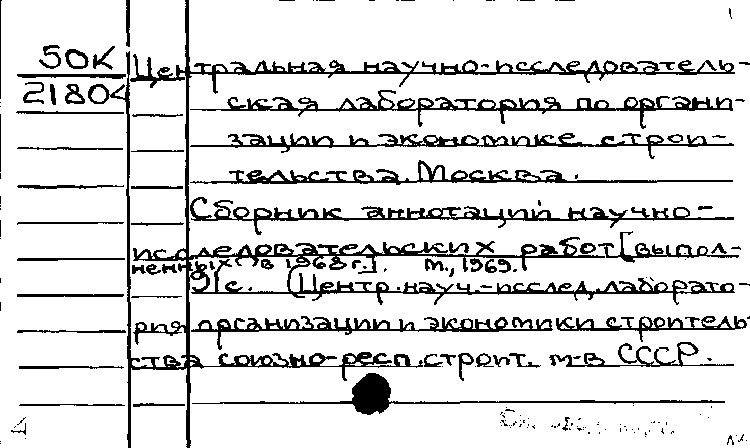 50K
21804
Центральная научно-исследователь-
ская лаборатория по органи-
зации и экономике строи-
тельства. Москва.
Сборник аннотаций научно-
исследовательских работ [выпол-
ненных в 1968 г.]. М., 1969.
91с. (Центр. науч.-исслед. лаборато-
рия организации и экономики строитель-
ства союзно-респ. строит. м-в СССР.
4